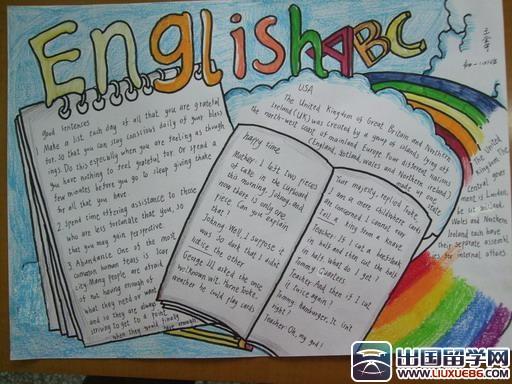 English ABC
good sentences
1 Make a list each day of all that you are grateful
for, so that you can stay conscious daily of your bless
ings. Do this especially when you are feeling as though
you have nothing to feel grateful for. Or spend a
few minutes before you go to sleep giving thanks
for all that you have
2 Spend time offering assistance to those
who are less fortunate that you, so
that you may gain perspective.
3 Abundance One of the most
common human fears is scar
city. Many people are afraid
of not having enough of
what they need or want
and so they are always
striving to get to a point
when they would finally
have enough
USA
The United Kingdom of Great Britain and Northern
Ireland (UK) was created by a group of islands lying off
the north-west coast of mainland Europe. Four different nations
(England, Scotland, Wales and Northern Ireland)
made up one
state
The United
Kingdom
Central gover
nment is
London,
Wales and Northern
Ireland each have
their separate assembl
ies for internal affairs
happy time
Mother: I left two pieces
of cake in the cupboard
this morning, Johnny. And
now there is only one
piece. Can you explain
that?
Johnny: Well, I suppose it
was so dark that I didnt
notice the other.
George III asked the one
who known wit. Horne Tooke,
weather he could play cards
Your majesty, replied Tooke,
I am a more childwhere cards
are concerned. I cannot even
tell a King from a knave.
Teacher: If I cut a beefsteak
in half and then cut the half
in half, what do I get?
Tommy: Quarters
Teacher: And then if I cut
it twice again?
Tommy: Hamburger, It. Isn't
right?
Teacher: Oh, my god!
出国留学网
WWW.LIUXUE86.COM